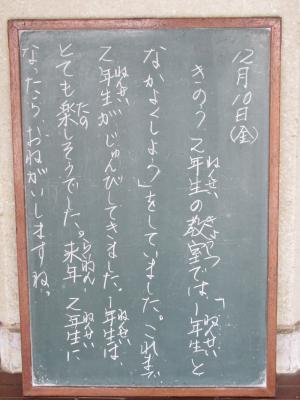 12月10日(金)
きのう2年生の教室では、「1年生と
なかよくしよう」をしていました。これまで
2年生がじゅんびしてきました。1年生は、
とても楽しそうでした。来年2年生に
なったら、おねがいしますね。